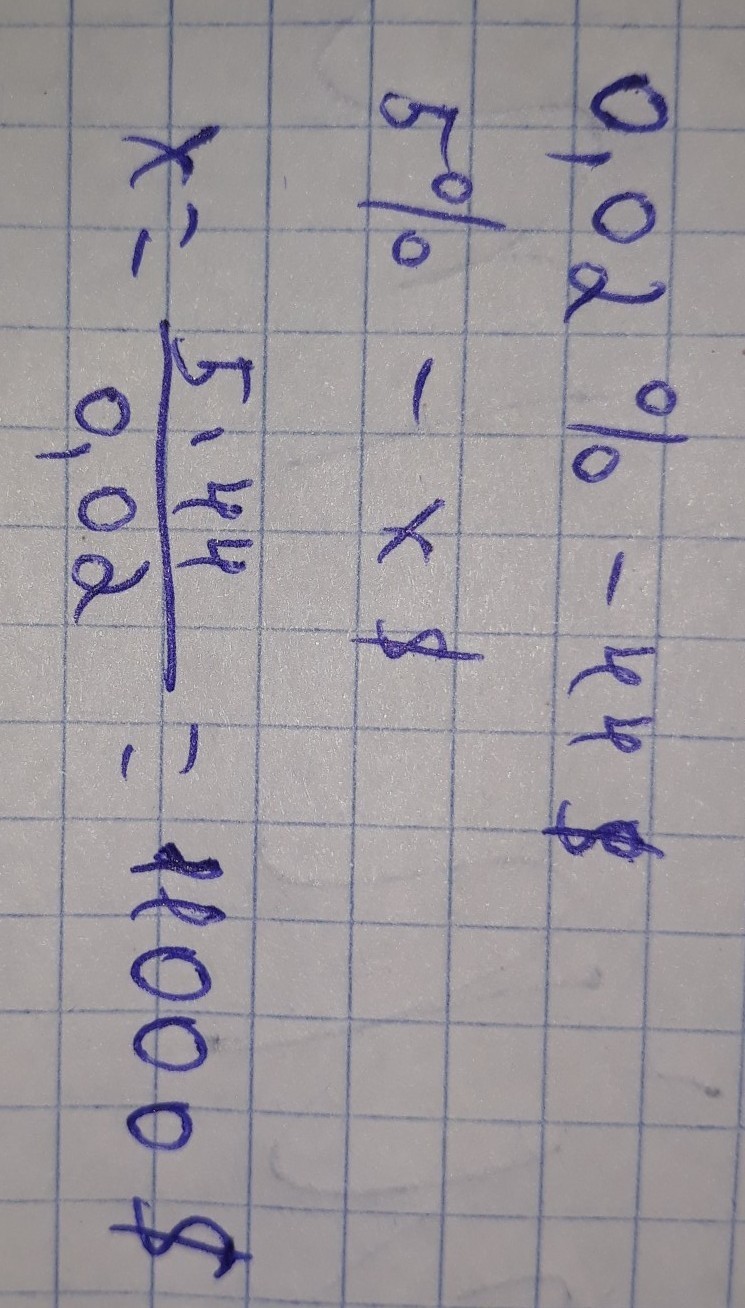 0,02 % - 44 $
5% - x $
x = 5·44 / 0,02 = 11000 $